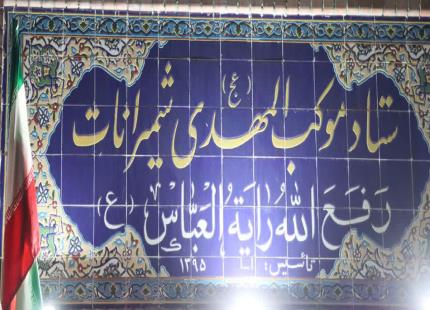 ستاد موکب المهدی (عج) شمیرانات
رَفَعَ اللهُ رایَةُ العَبّاسْ (ع)
تأسیس: ۱۳۹۵